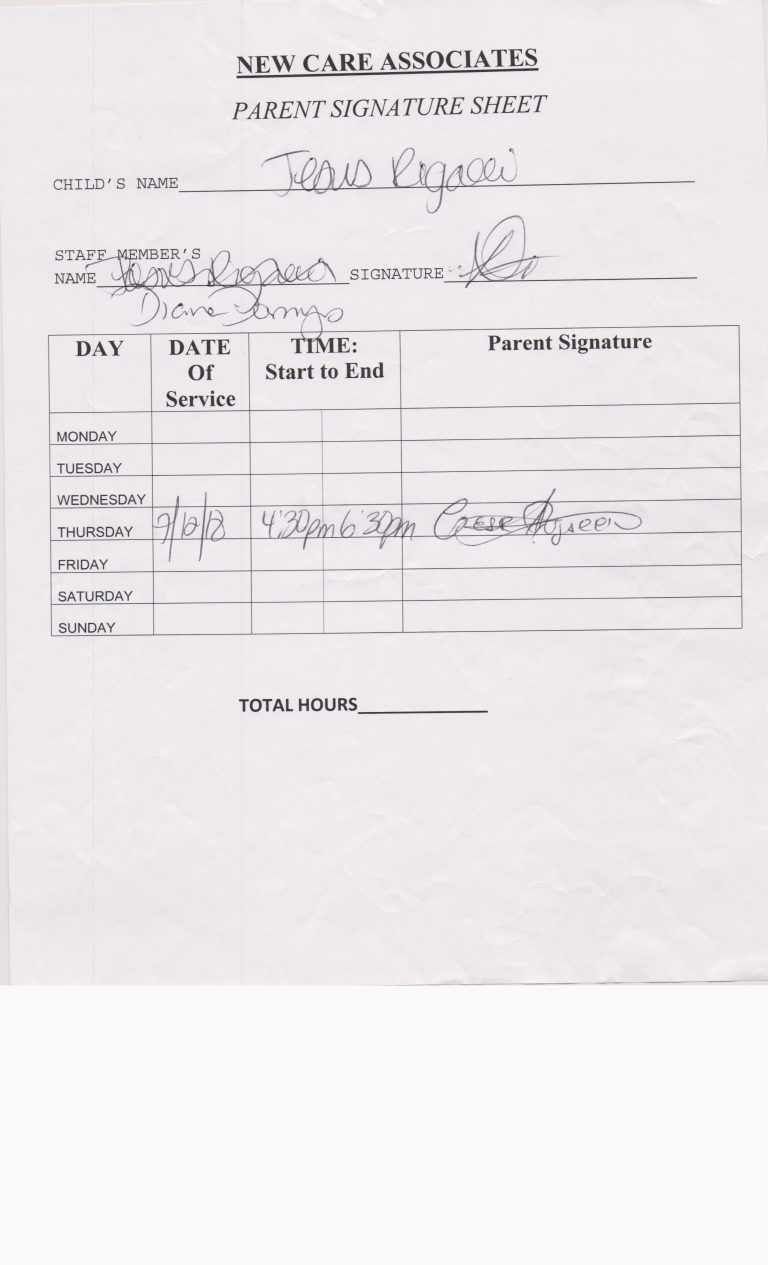 NEW CARE ASSOCIATES
PARENT SIGNATURE SHEET
CHILD'S NAME Jesus Rigacci
STAFF MEMBER'S
NAME SIGNATURE
Diane
DAY DATE Of Service TIME: Start to End Parent Signature
MONDAY
TUESDAY
WEDNESDAY
THURSDAY 4:30pm 6:30pm
FRIDAY
SATURDAY
SUNDAY
TOTAL HOURS